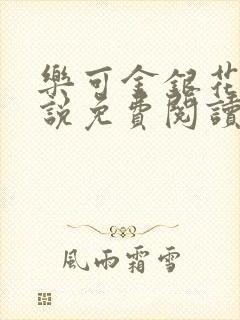 樂可金銀花
說免費閱讀
風雨霜雪